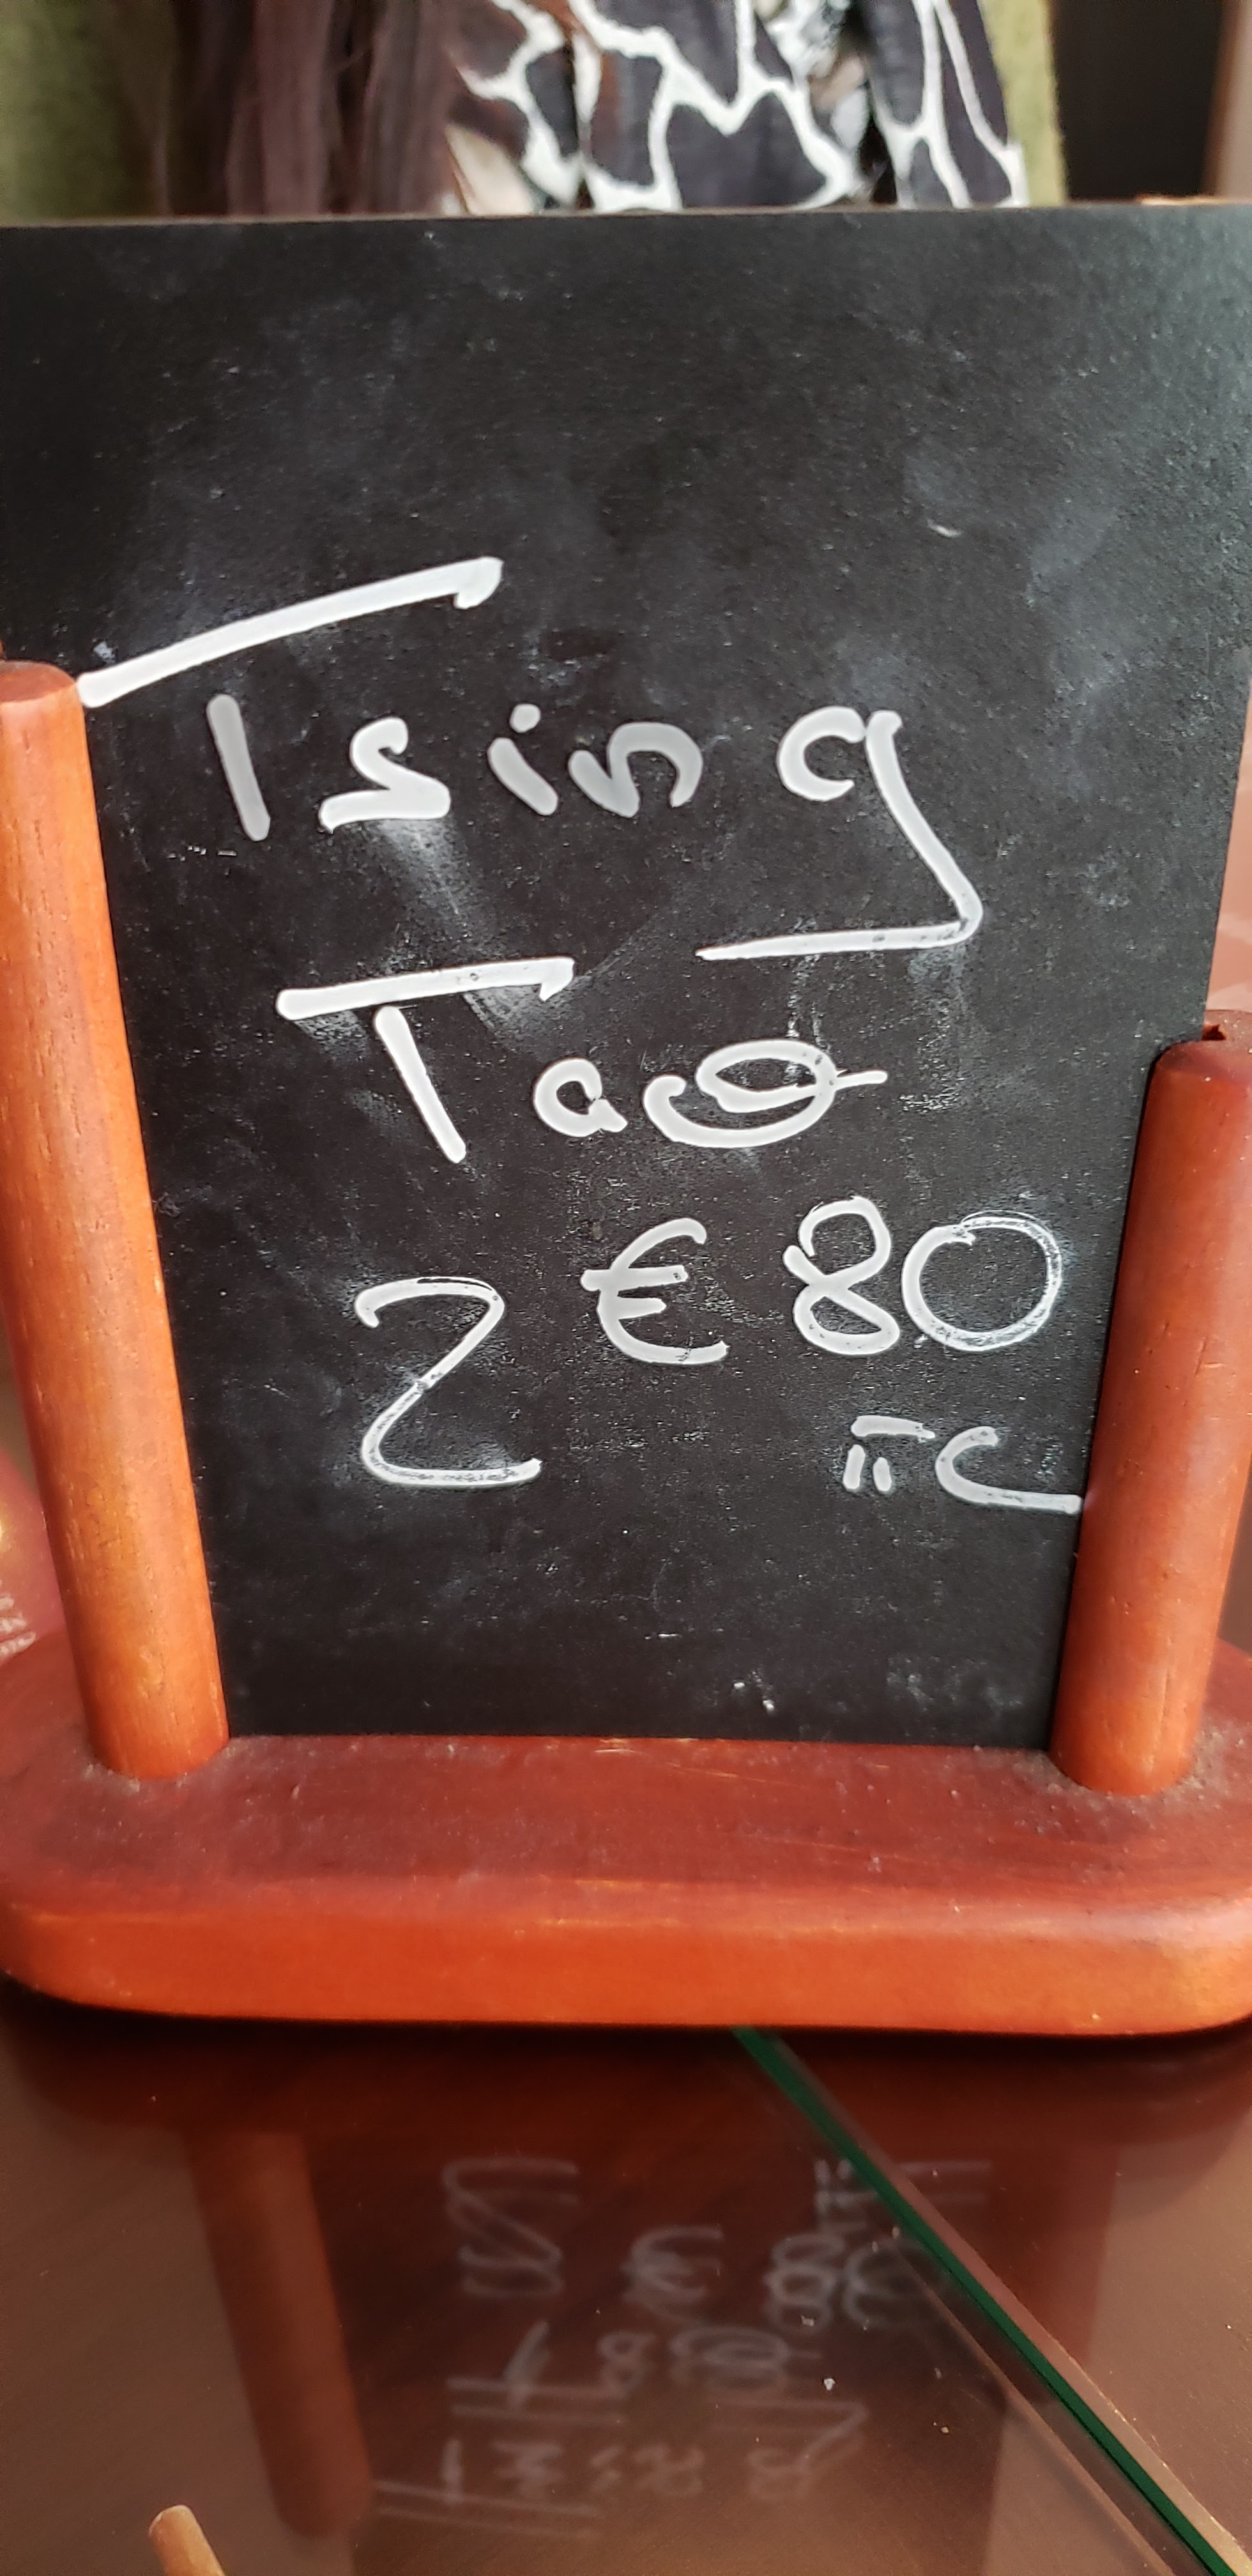 Tsing
Tao
2 € 80
TTC